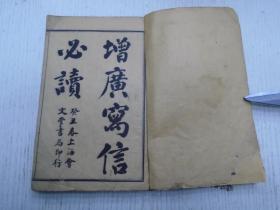 增廣寫信
必讀
癸丑春上海會
文堂書局印行